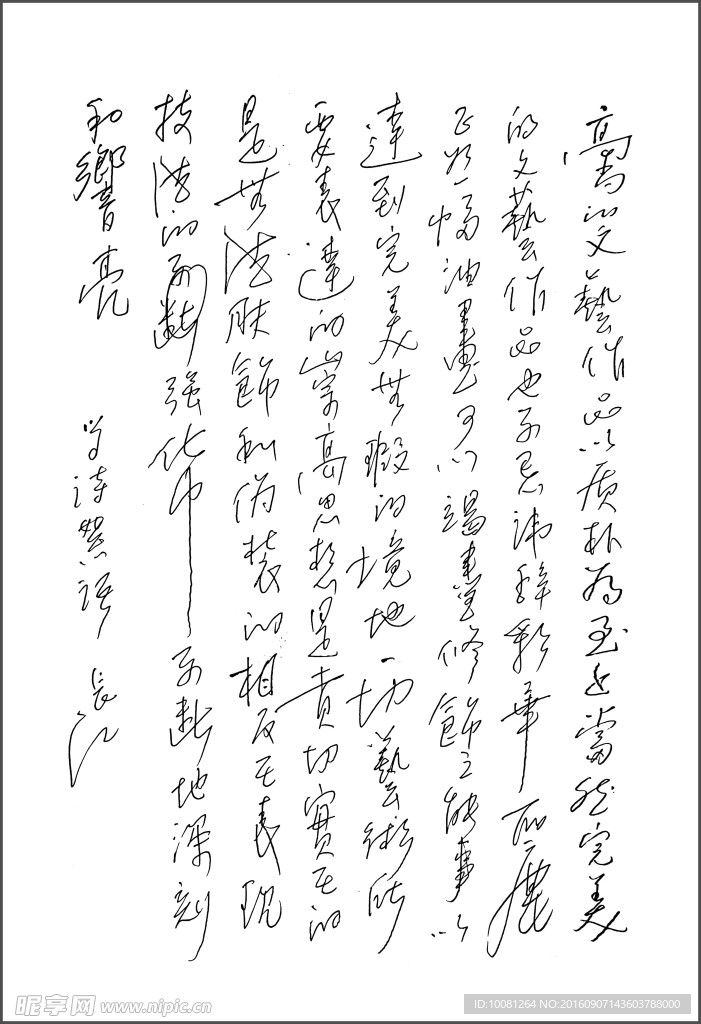 高的文藝作品以质朴為至上當然完美
的文藝作品也不忌讳辞彩華丽麗
正如一幅油畫可以竭盡修飾之能事以
達到完美無瑕的境地一切藝術所
要表達的崇高思想是真切實在的
是無法膚飾和伪装的相反在表现
技法的不断强化中不断地深刻
和響亮
学诗絮语 長江
昵享网 www.nipic.cn
ID:10081264 NO:20160907143603788000